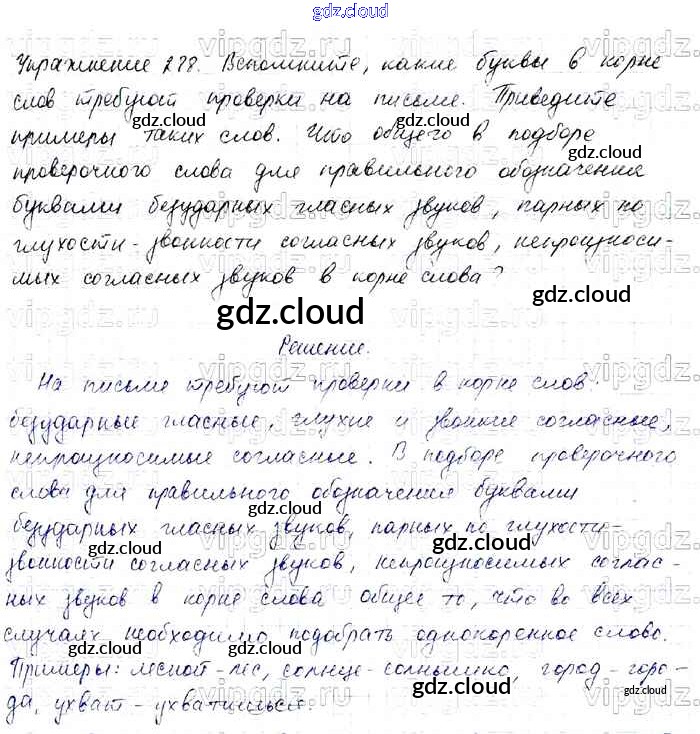 gdz.cloud
Упражнение 278. Вспомните, какие буквы в корне
слов требуют проверки на письме. Приведите
примеры таких слов. Что общего в подборе
проверочного слова для правильного обозначения
буквами безударных гласных звуков, парных по
глухости-звонкости согласных звуков, непроизноси-
мых согласных звуков в корне слова?
Решение.
На письме требуют проверки в корне слов:
безударные гласные, глухие и звонкие согласные,
непроизносимые согласные. В подборе проверочного
слова для правильного обозначения буквами
безударных гласных звуков, парных по глухости-
звонкости согласных звуков, непроизносимых соглас-
ных звуков в корне слова общее то, что во всех
случаях необходимо подобрать однокоренное слово.
Примеры: лесной-лес, солнце-солнышко, город-горо-
да, ухват-ухватиться.